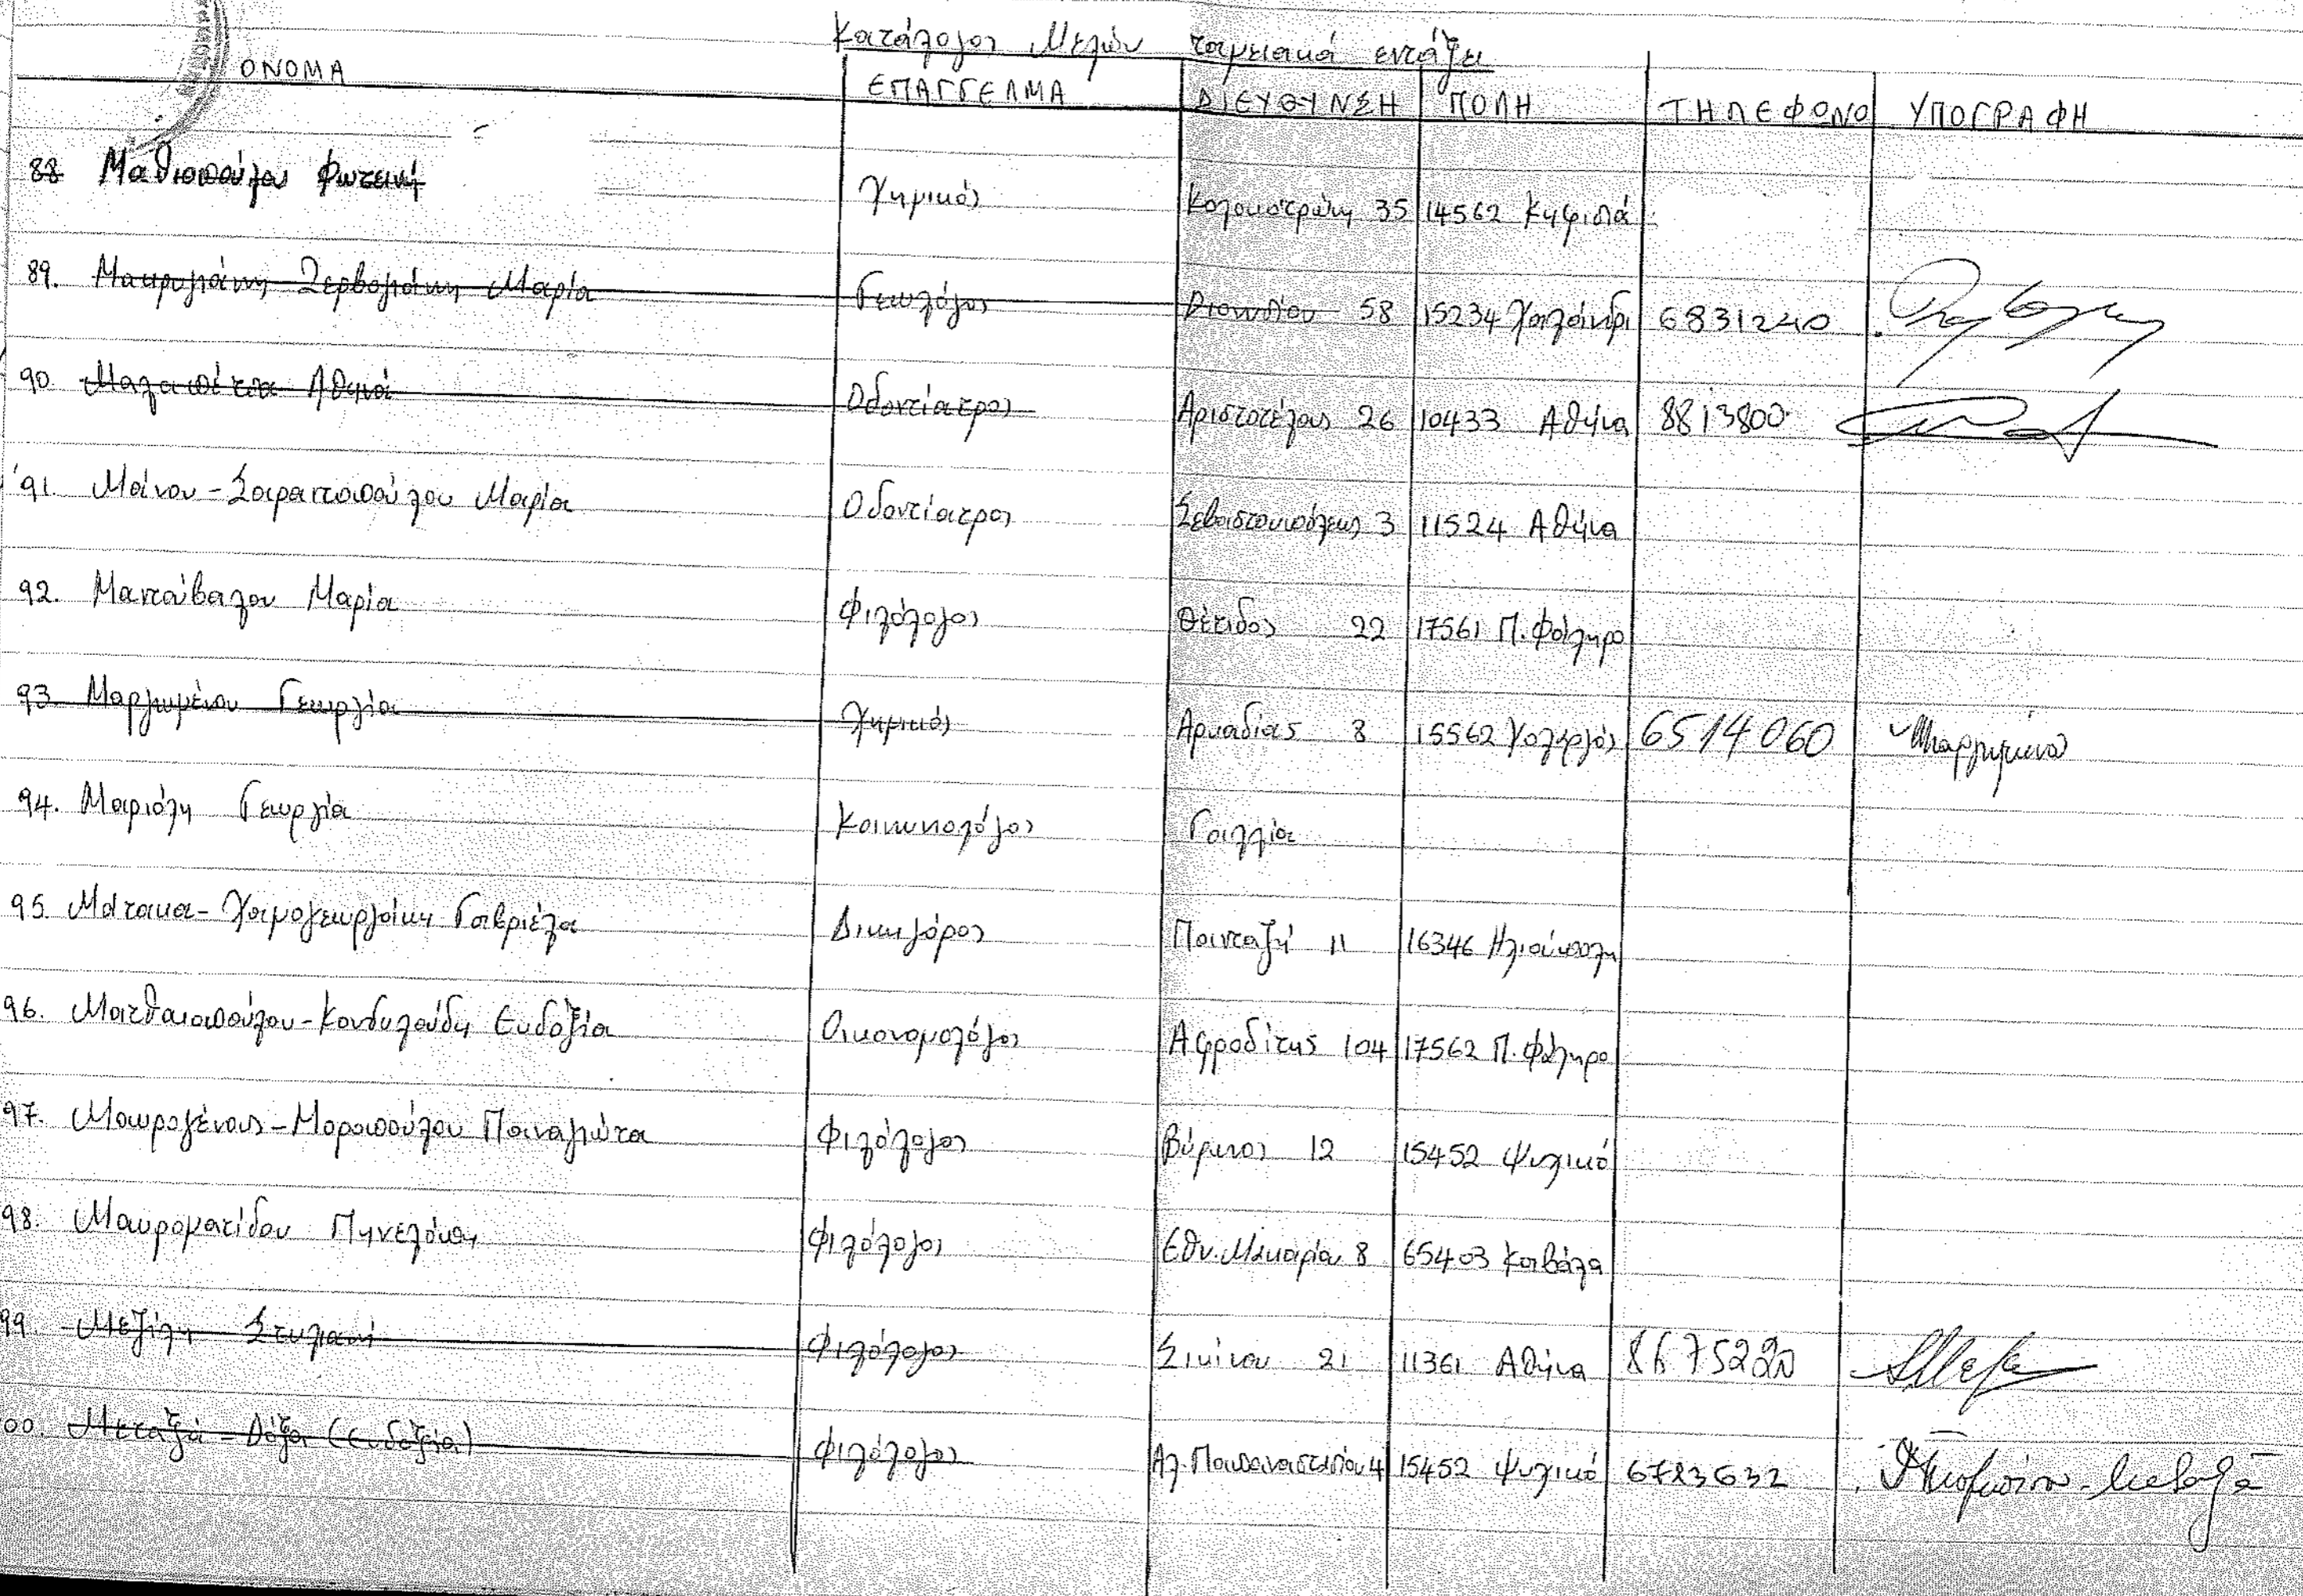 Κατάλογος Μελών ταμειακά εντάξει
ΟΝΟΜΑ ΕΠΑΓΓΕΛΜΑ ΔΙΕΥΘΥΝΣΗ ΠΟΛΗ ΤΗΛΕΦΩΝΟ ΥΠΟΓΡΑΦΗ
88 Μαθιοπούλου Φωτεινή Χημικός Κολοκοτρώνη 35 14562 Κηφισιά
89. Μακρυγιάννη Ζερβογιάννη Μαρία Γεωλόγος Διονυσίου 58 15234 Χαλάνδρι 6831240
90 Μαλαπέτσα Αθηνά Οδοντίατρος Αριστοτέλους 26 10433 Αθήνα 8813800
91. Μάνου-Σαραντοπούλου Μαρία Οδοντίατρος Σεβαστουπόλεως 3 11524 Αθήνα
92. Μαντούβαλου Μαρία Φιλόλογος Θέτιδος 22 17561 Π. Φάληρο
93. Μαργωμένου Γεωργία Χημικός Αρκαδίας 8 15562 Χολαργός 6514060
94. Μαριόλη Γεωργία Κοινωνιολόγος Γαλλία
95. Μάτακα-Χαιμογεωργάκη Γαβριέλα Δικηγόρος Πανταζή 11 16346 Ηλιούπολη
96. Ματθαιοπούλου-Κονδυλούδη Ευδοξία Οικονομολόγος Αφροδίτης 104 17562 Π. Φάληρο
97. Μαυρογένους-Μοραπούλου Παναγιώτα Φιλόλογος Βύρωνος 12 15452 Ψυχικό
98. Μαυροματίδου Πηνελόπη Φιλόλογος Εθν. Μακαρίου 8 65403 Καβάλα
99. Μεζίλη Στυλιανή Φιλόλογος Σικίνου 21 11361 Αθήνα
00. Μεταξά-Δόξα (Ευδοξία) Φιλόλογος Αλ. Παπαναστασίου 4 15452 Ψυχικό 6783632